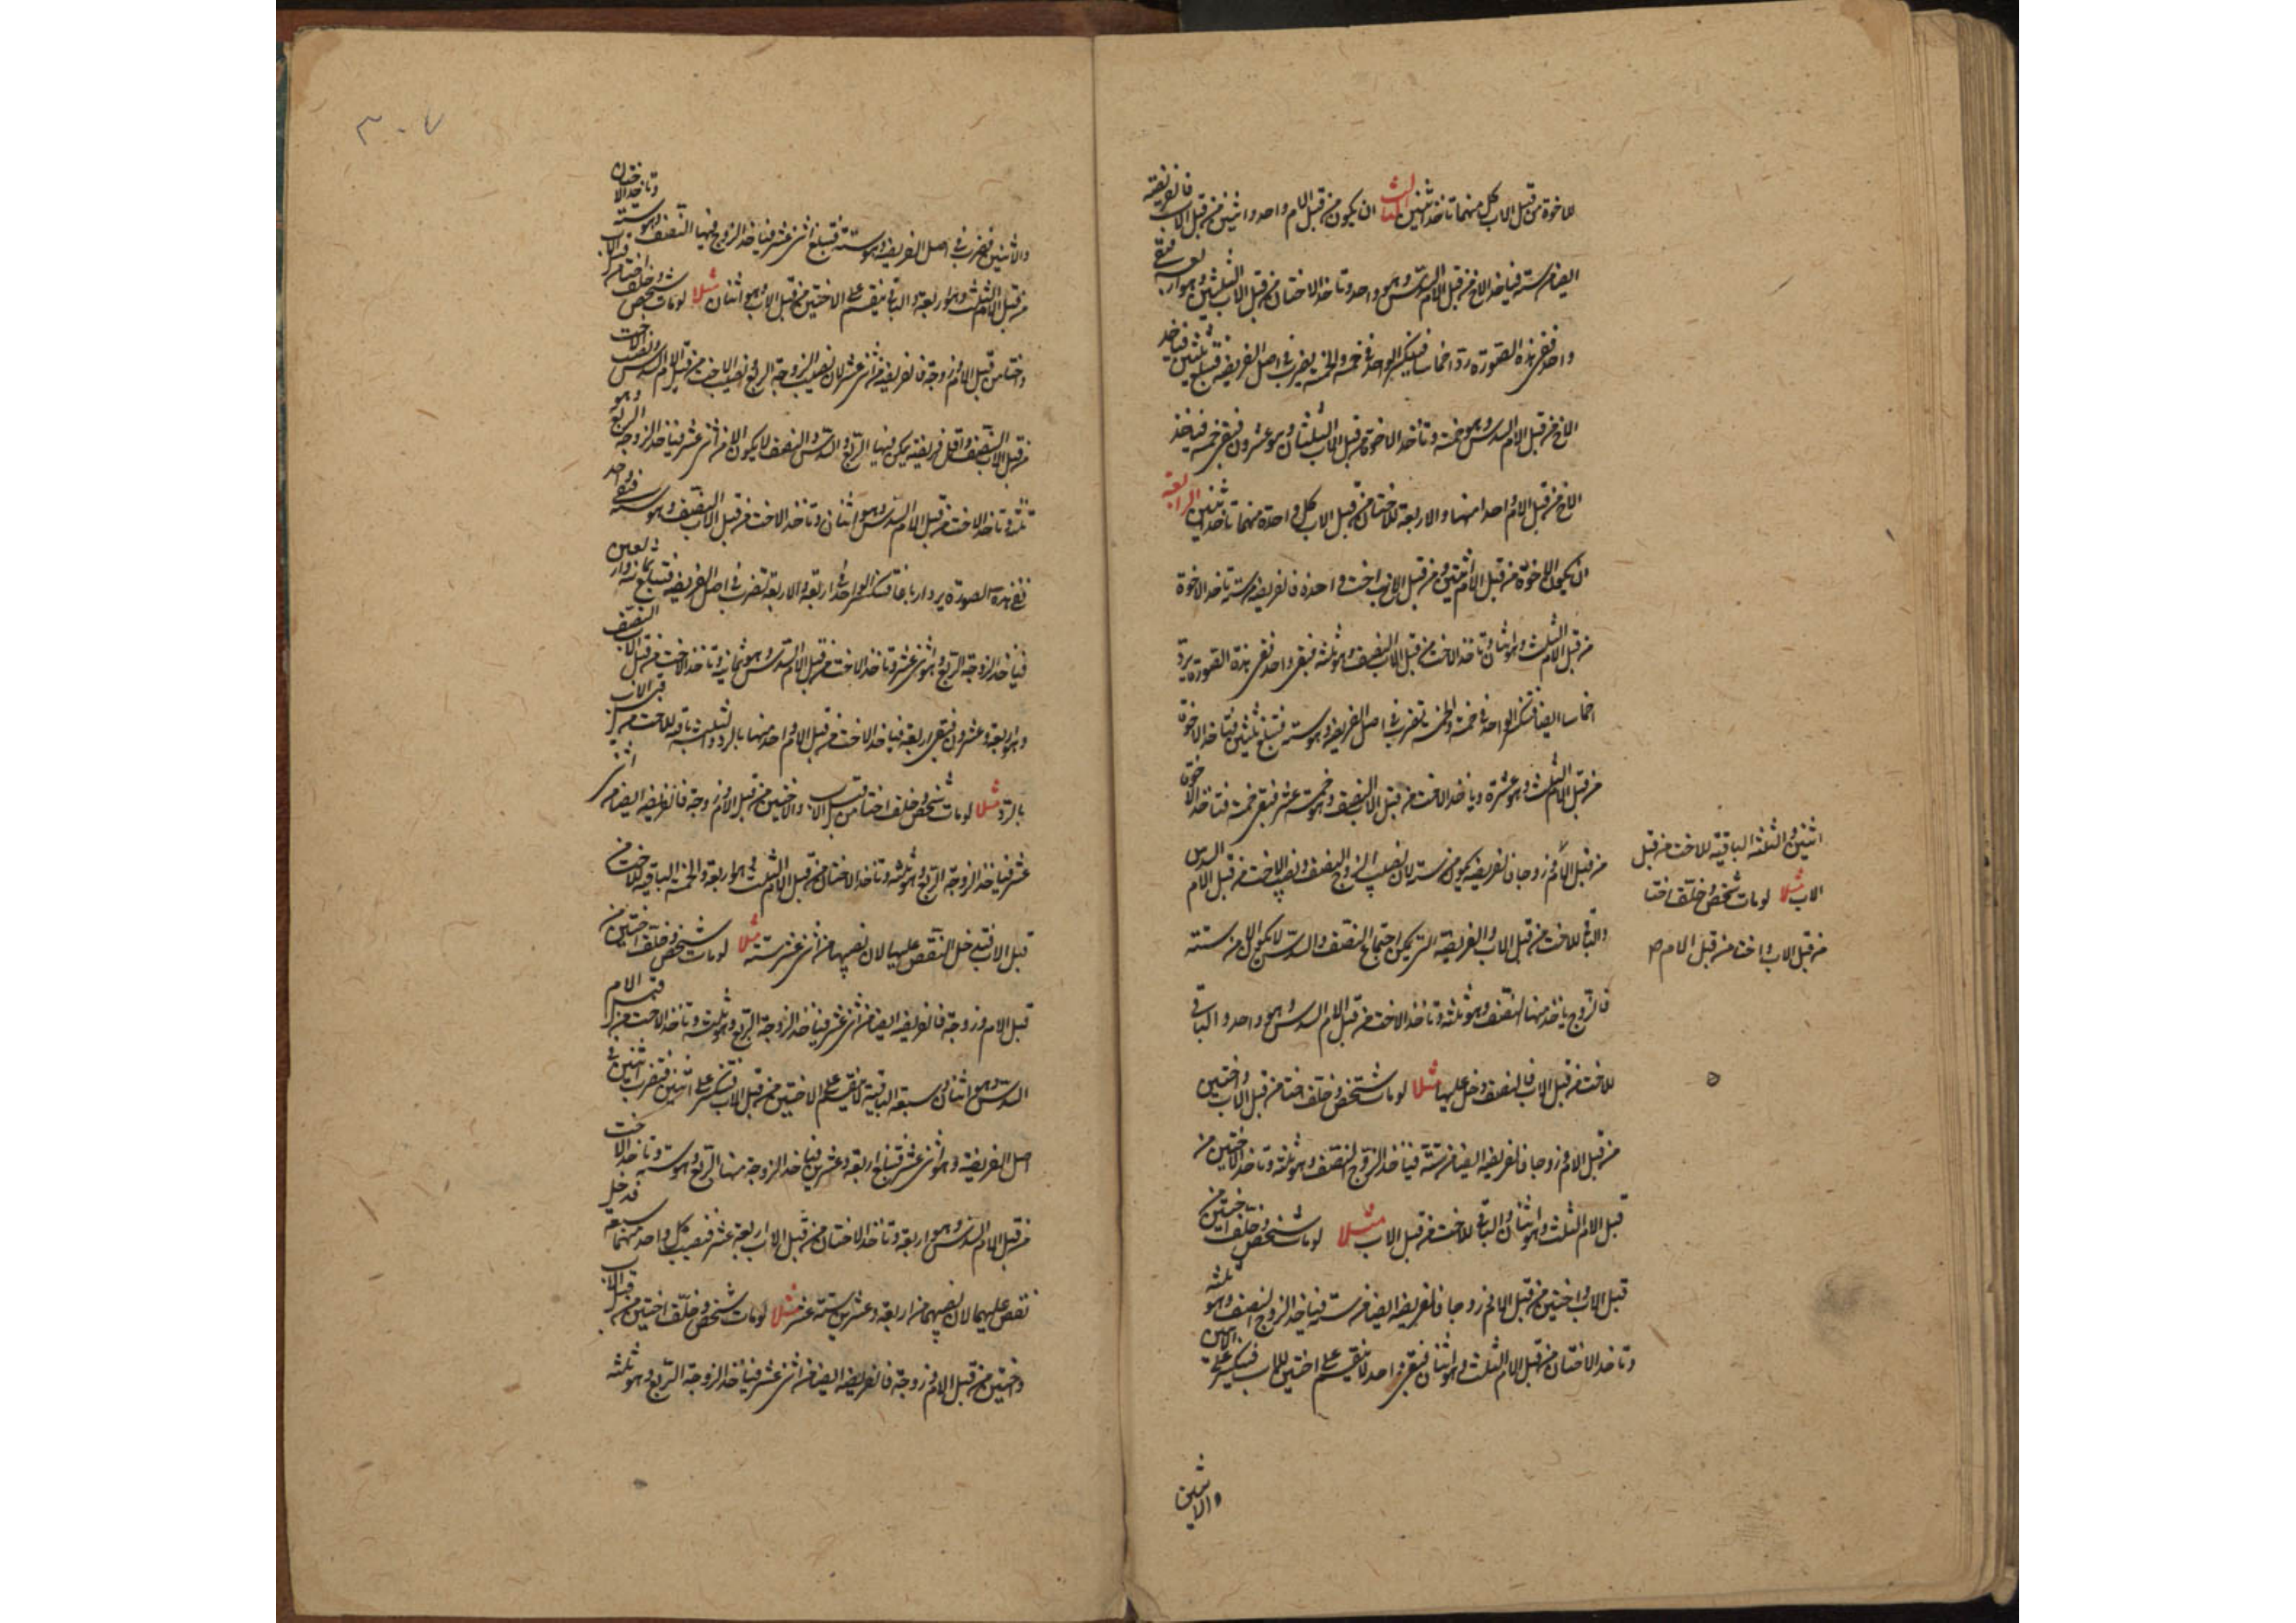 للاخوة من قبل الاب كل منهما تاخذ اثنين الثالث ان يكون من قبل الام واحد واثنين من قبل الاب فالفريضة
ايضا من ستة فياخذ الاخ من قبل الام السدس وهو واحد وتاخذ الاختان من قبل الاب الثلثين وهو اربعة فبقى
واحد ففى هذه الصورة يرد اخماسا فينكسر الواحد فى خمسة والخمسة يضرب فى اصل الفريضة فتبلغ ثلثين فياخذ
الاخ من قبل الام السدس وهو خمسة وتاخذ الاخوة من قبل الاب الثلثان وهو عشرون فبقى خمسة فياخذ
الاخ من قبل الام واحدا منها والاربعة للاختان من قبل الاب كل واحدة منهما تاخذ اثنين الرابعة
ان يكون الاخوة من قبل الام اثنتين ومن قبل الاب اخت واحدة فالفريضة من ستة تاخذ الاخوة
من قبل الام الثلث وهو اثنان وتاخذ الاخت من قبل الاب النصف وهو ثلثة فبقى واحد ففى هذه الصورة يرد
اخماسا ايضا فتنكسر الواحد فى خمسة والخمسة تضرب فى اصل الفريضة وهو ستة فتبلغ ثلثين فتاخذ الاخوة
من قبل الام الثلث وهو عشرة وياخذ الاخت من قبل الاب النصف وهو خمسة عشر فبقى خمسة فتاخذ الاخوة
اثنين والثلثة الباقية للاخت من قبل
الاب مثلا لو مات شخص وخلف اختا
من قبل الاب واختا من قبل الام
من قبل الام وزوجا فالفريضة يكون من ستة لان نصيب الزوج النصف ونصيب الاخت من قبل الام السدس
والباقى للاخت من قبل الاب والفريضة التى يمكن اجتماع النصف والسدس لا يكون الا من ستة
فالزوج ياخذ منها النصف وهو ثلثة وتاخذ الاخت من قبل الام السدس وهو واحد والباقى
للاخت من قبل الاب فالنقص دخل عليها مثلا لو مات شخص وخلف اختا من قبل الاب واختين
من قبل الام وزوجا فالفريضة ايضا من ستة فياخذ الزوج النصف وهو ثلثة وتاخذ الاختين من
قبل الام الثلث وهو اثنان والباقى للاخت من قبل الاب مثلا لو مات شخص وخلف اختين من
قبل الاب واختين من قبل الام وزوجا فالفريضة ايضا من ستة فياخذ الزوج النصف وهو ثلثة
وتاخذ الاختان من قبل الام الثلث وهو اثنان فبقى واحد لا ينقسم على اختين للاب فينكسر على
والاثنين
والاثنين فيضرب فى اصل الفريضة وهو ستة فتبلغ اثنى عشر فياخذ الزوج منها النصف وهو ستة وتاخذ الاختان
من قبل الام الثلث وهو اربعة والباقى ينقسم على الاختين من قبل الاب وهو اثنان مثلا لو مات شخص وخلف اختا من قبل الاب
واختا من قبل الام وزوجة فالفريضة من اثنى عشر لان نصيب الزوجة الربع ونصيب الاخت من قبل الام السدس ونصيب الاخت
من قبل الاب النصف واقل فريضة يمكن فيها الربع والسدس والنصف لا يكون الا من اثنى عشر فياخذ الزوجة الربع وهو
ثلثة وتاخذ الاخت من قبل الام السدس وهو اثنان وتاخذ الاخت من قبل الاب النصف وهو ستة فبقى واحد
ففى هذه الصورة يرد ارباعا فتنكسر الواحد فى اربعة والاربعة تضرب فى اصل الفريضة فتبلغ ثمانية واربعين
فياخذ الزوجة الربع وهو اثنى عشر وتاخذ الاخت من قبل الام السدس وهو ثمانية وتاخذ الاخت من قبل الاب النصف
وهو اربعة وعشرون فبقى اربعة فياخذ الاخت من قبل الام واحد منها بالرد والثلثة باقية للاخت من قبل الاب
بالرد مثلا لو مات شخص وخلف اختا من قبل الاب والاختين من قبل الام وزوجة فالفريضة ايضا من اثنى
عشر فياخذ الزوجة الربع وهو ثلثة وتاخذ الاختان من قبل الام الثلث وهو اربعة والخمسة الباقية للاخت من
قبل الاب فتدخل النقص عليها لان نصيبها من اثنى عشر ستة مثلا لو مات شخص وخلف اختين من
قبل الام وزوجة فالفريضة ايضا من اثنى عشر فياخذ الزوجة الربع وهو ثلث وتاخذ الاخت من قبل الام
السدس وهو اثنان وسبعة الباقية لا ينقسم على الاختين من قبل الاب فتنكسر على اثنين فتضرب اثنين فى
اصل الفريضة وهو اثنى عشر فتبلغ اربعة وعشرين فياخذ الزوجة منها الربع وهو ستة وتاخذ الاخت
من قبل الام السدس وهو اربعة وتاخذ الاختان من قبل الاب اربعة عشر فنصيب كل واحد منهما سبعة قد دخل
نقص عليهما لان نصيبهما من اربعة وعشرين ستة عشر مثلا لو مات شخص وخلف اختين من قبل الاب
واختين من قبل الام وزوجة فالفريضة ايضا من اثنى عشر فياخذ الزوجة الربع وهو ثلثة